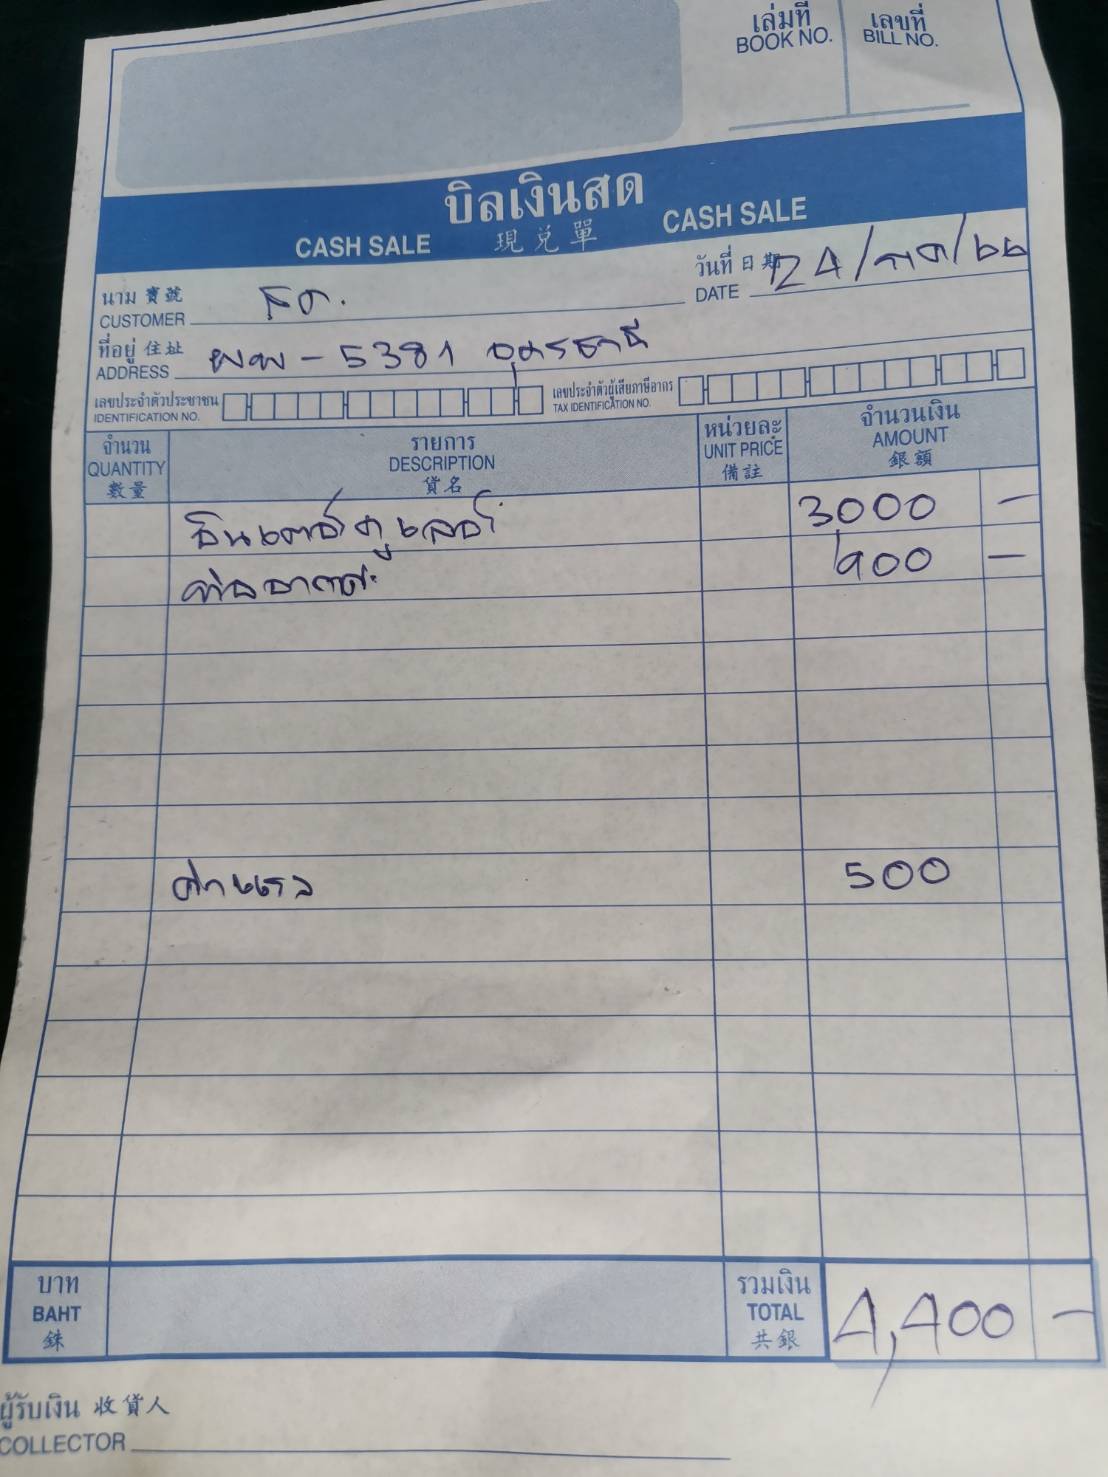 เล่มที่ เลขที่
BOOK NO. BILL NO.
บิลเงินสด
CASH SALE 現兌單 CASH SALE
วันที่ 日期 24/กค/๖๖
DATE
นาม 寶號
CUSTOMER รต.
ที่อยู่ 住址
ADDRESS ผพ - 5381 อุดรธานี
เลขประจำตัวประชาชน เลขประจำตัวผู้เสียภาษีอากร
IDENTIFICATION NO. TAX IDENTIFICATION NO.
จำนวน รายการ หน่วยละ จำนวนเงิน
QUANTITY DESCRIPTION UNIT PRICE AMOUNT
數量 貨名 備註 銀額
อินเตอร์คูลเลอร์ 3000 -
ท่ออากาศ 900 -
ค่าแรง 500
บาท รวมเงิน
BAHT TOTAL 4,400 -
銖 共銀
ผู้รับเงิน 收貨人
COLLECTOR